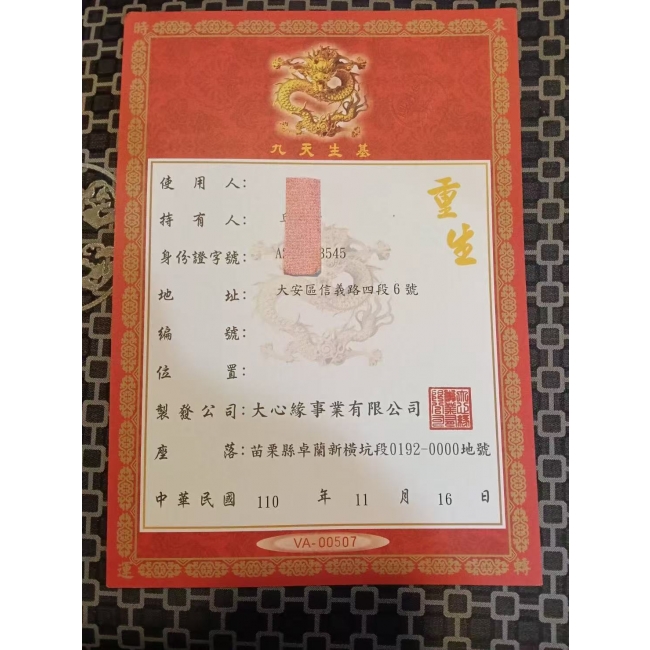 時來
九天生基
重生
使用人:
持有人:
身份證字號: A2 3545
地址: 大安區信義路四段6號
編號:
位置:
製發公司: 大心緣事業有限公司
座落: 苗栗縣卓蘭新橫坑段0192-0000地號
中華民國 110 年 11 月 16 日
VA-00507
運轉